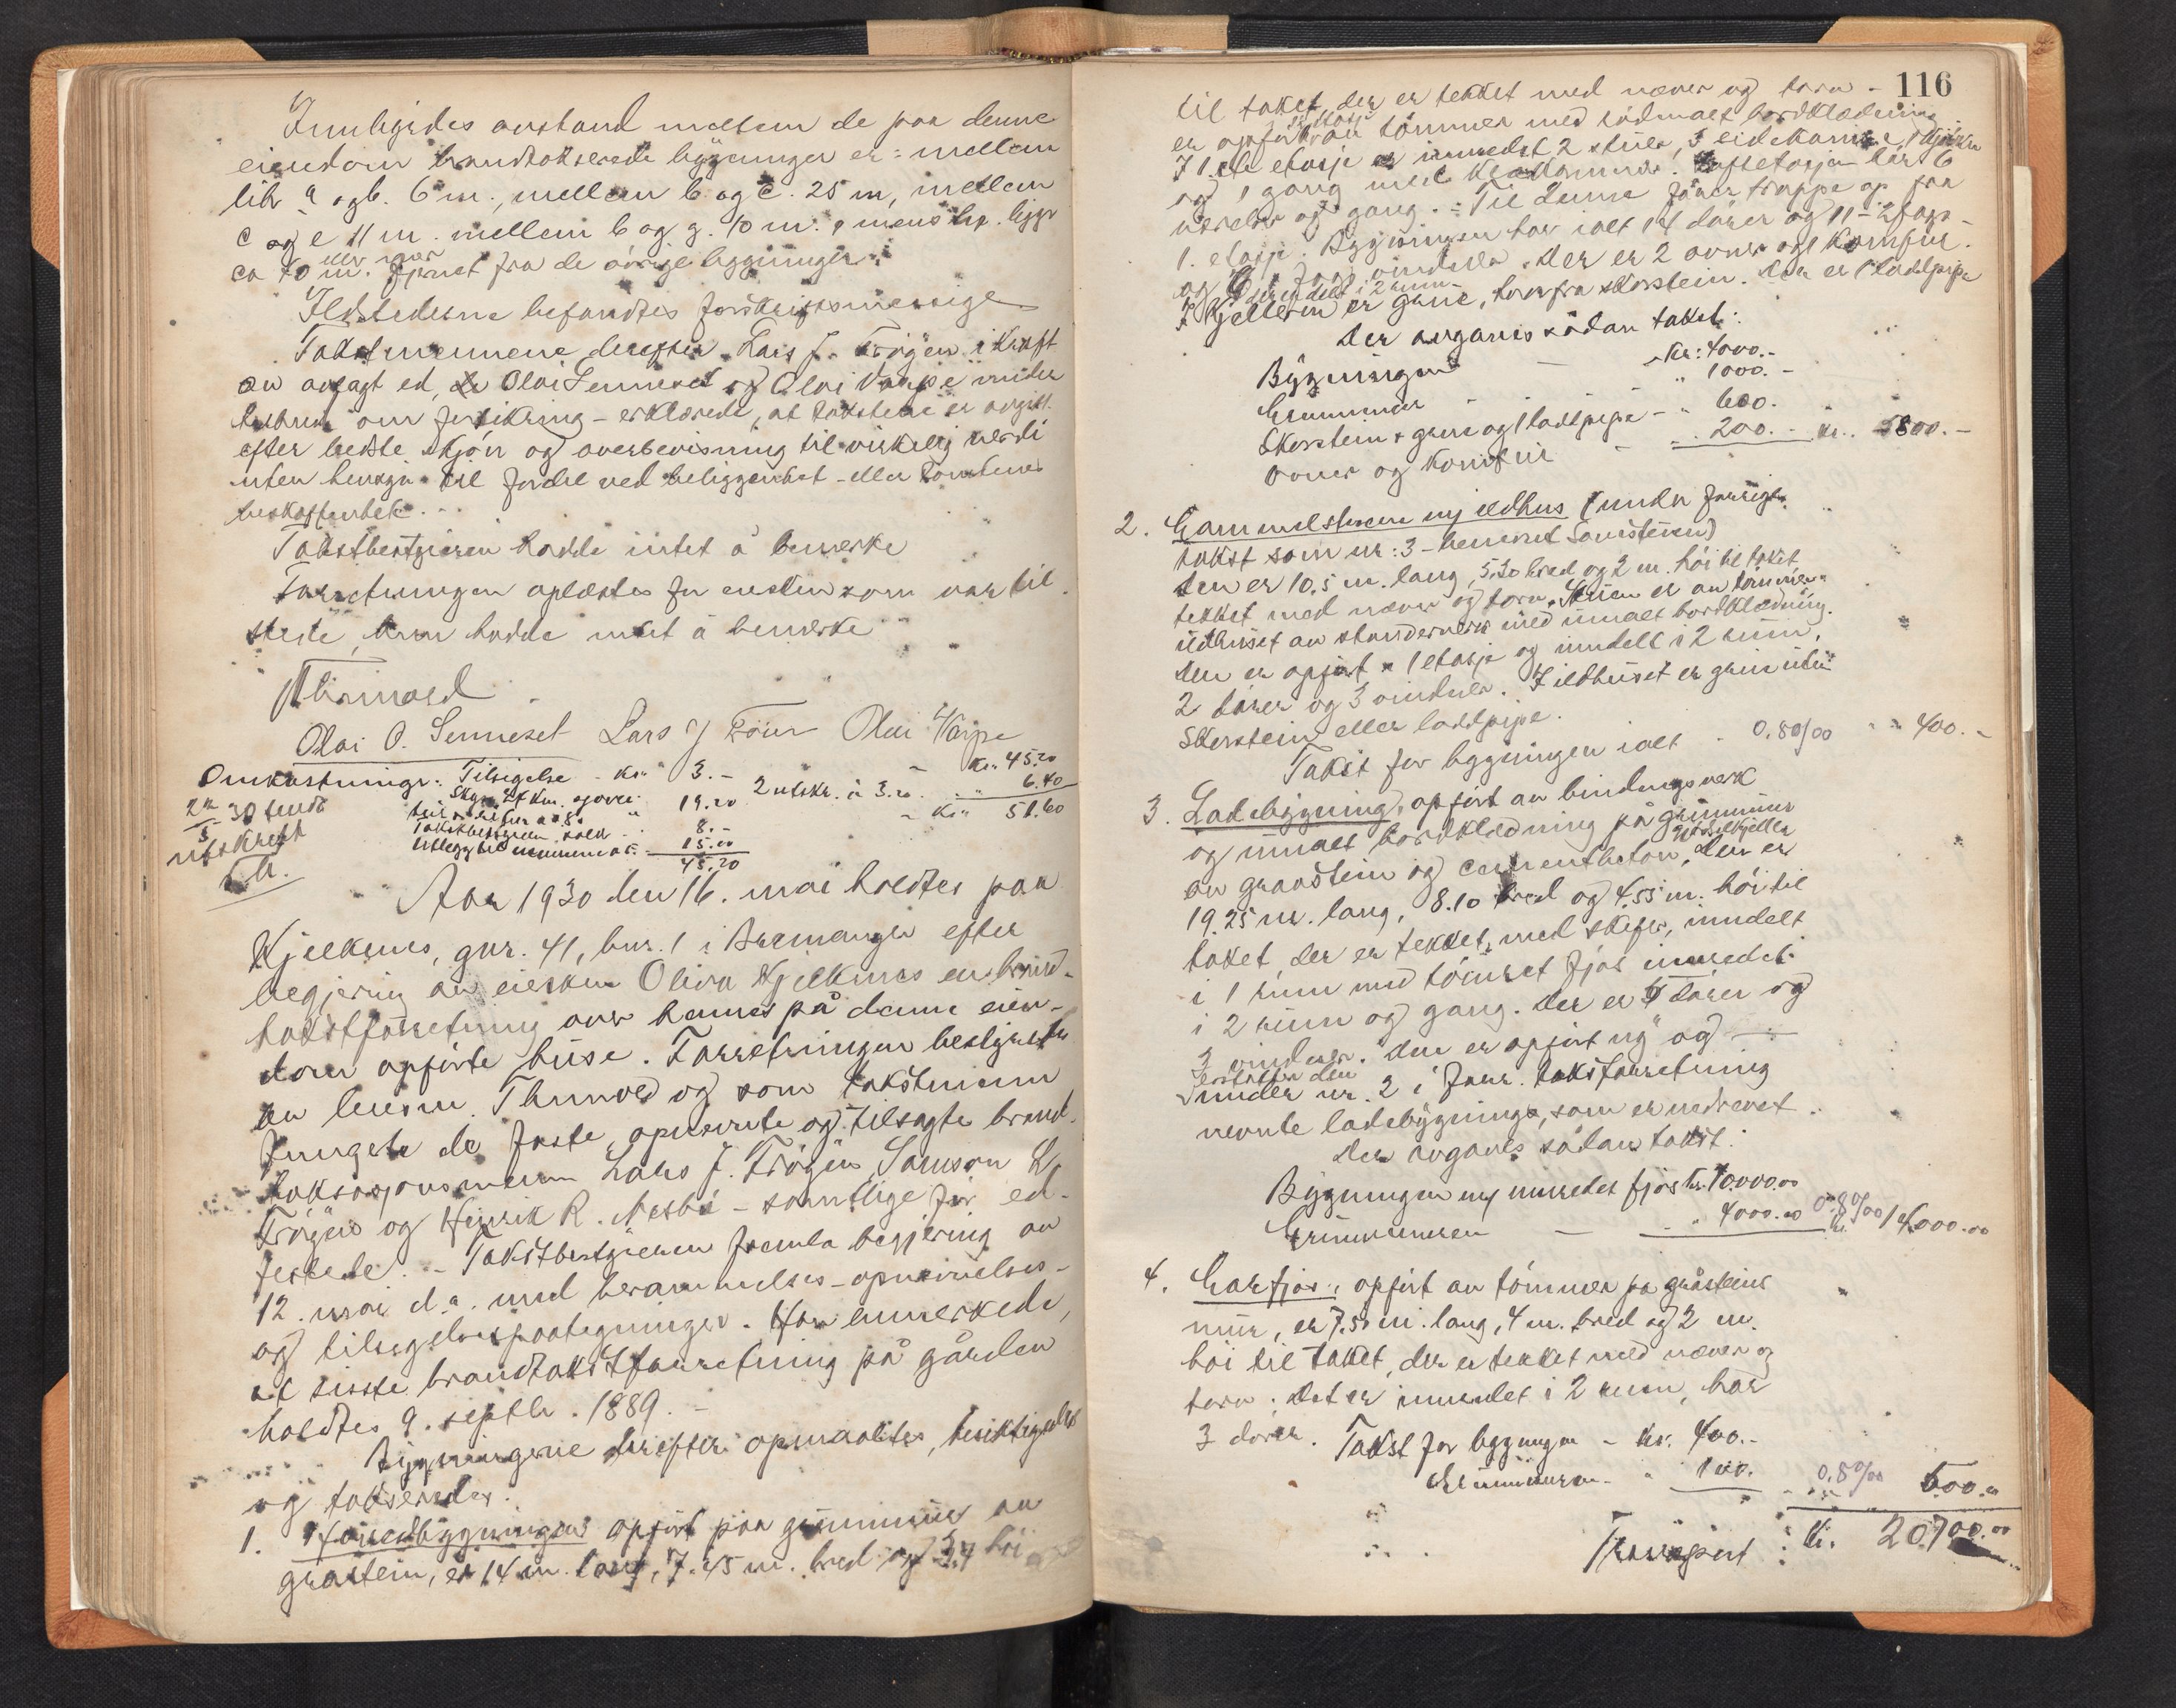 Innbyrdes avstand mellem de paa denne
eiendom brandtakserede bygninger er: mellem
litr a og b. 6 m., mellem b og c. 25 m, mellem
c og e 11 m. mellem b og g. 10 m: mens ligger
eller mer
ca 70 m. fjernet fra de øvrige bygninger.
Ildstederne befandtes forskriftsmessige
Takstmennene derefter Lars J. Frøyen i kraft
av avlagt ed, Olai Senneset og Olai Varpe under
tilbud om forsikring - erklærede, at taksten er avgitt
efter bedste skjøn og overbevisning til virkelig verdi
uten hensyn til fordel ved beliggenhet - eller tomtens
beskaffenhet.
Takstbestyreren hadde intet å bemerke
Forretningen oplæstes for eieren som var til
stede, han hadde intet å bemerke
Thunold
Olai O. Senneset Lars J Fröien Olai Varpe
Omkostninger: Tilsigelse - kr. 3.- kr. 45.20
Skyss 24 km. 19.20 2 utskr. à 3.20 " 6.40
kr. 51.60
Takstbestyreren 8.-
Utlegg til mennene à 5.- 15.00
45.20
30 sendt
utskrift
Th.
Aar 1930 den 16. mai holdtes paa
Kjelkenes, gnr. 41, bnr. 1 i Bremanger efter
begjering av eiersken Oliva Kjelkenes en brand-
takstforretning over hennes på denne eien-
dom opførte huse. Forretningen bestyrtes
av lensm. Thunold og som takstmenn
fungerte de faste, opnevnte og tilsagte brand-
taksasjonsmenn Lars J. Frøyen, Samson L.
Frøyen og Henrik R. Nesbø - samtlige før ed-
festede. - Takstbestyreren fremla begjering av
12. mai d.a. med berammelses-opnevnelses-
og tilsigelsespaategninger. Han anmerkede,
at sisste brandtakstforretning på gården
holdtes 9. septbr. 1889. -
Bygningene derefter opmaaltes, besiktigedes
og takseredes.
1. Hovedbygningen opført paa grunnmur av
gråstein, er 14 m. lang, 7.45 m. bred og 3,4 høi
116
til taket, der er tekket med næver og torv -
er opført av tømmer med rødmalt bordklædning
I 1ste etasje er innredet 2 stuer, 3 sidekamre, 1 kjøkken
og 1 gang med kleskammer. Loftsetasjen har 6
værelser og gang. - Til denne fører trappe op fra
1. etasje. Bygningen har ialt 14 dører og 11 - 2 fags -
og 6 1 fags vinduer. Der er 2 ovner og 1 komfur.
der er delt i 2 rum
I kjelleren er grue, fra skorstein. Der er 1 laddpipe
Der avgaves sådan takst:
Bygningen - kr: 4000.-
Grunnmur " 1000.-
Skorstein + grue og 1 laddpipe - " 600.
Ovner og komfur - " 200.- kr. 5800.-
2. Gammelstuen m/ ildhus (under forrige
takst som nr: 3 - benevnt
den er 10,5 m. lang, 5,30 bred og 2 m. høi til taket
tekket med næver og torv. Stuen er av tømmer
ildhuset av stenderverk med umalt bordklædning.
den er opført i 1 etasje og inndelt i 2 rum,
2 dører og 3 vinduer. I ildhuset er grue uten
skorstein eller laddpipe.
Takst for bygningen ialt - 0.8 0/00 " " 400.-
3. Ladebygning, opført av bindingsverk
og umalt bordklædning på grunnmur
av gråstein og cementbeton, der er
19.25 m. lang, 8.10 bred og 4.55 m. høi til
taket, der er tekket med skifer, inndelt
i 1 rum med tømret fjøs innredet
i 2 rum og gang. Der er 4 dører og
3 vinduer. Den er opført ny og
erstatter den
under nr. 2 i forr. takstforretning
nevnte ladebygning, som er nedrevet.
Der avgaves sådan takst:
Bygningen m/ innredet fjøs kr. 10.000.00
Grunnmuren - " 4000.00 0.8 0/00 kr. 14000.00
4. Garfjøs, opført av tømmer på gråsteins
mur, er 7.50 m. lang, 4 m. bred og 2 m.
høi til taket, der er tekket med næver og
torv. Det er innredet i 2 rum, har
3 dører. Takst for bygningen - kr. 400.-
Grunnmuren - " 100. 0.8 0/00 500.00
Transport: kr. 20700.00